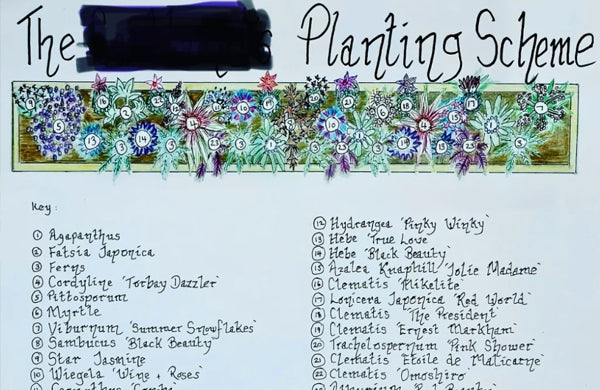 The Planting Scheme
Key:
1 Agapanthus
2 Fatsia Japonica
3 Ferns
4 Cordyline 'Torbay Dazzler'
5 Pittosporum
6 Myrtle
7 Viburnum 'Summer Snowflakes'
8 Sambucus 'Black Beauty'
9 Star Jasmine
10 Wiegela 'Wine + Roses'
12 Hydrangea 'Pinky Winky'
13 Hebe 'True Love'
14 Hebe 'Black Beauty'
15 Azalea Knaphill 'Jolie Madame'
16 Clematis 'Mikelite'
17 Lonicera Japonica 'Red World'
18 Clematis 'The President'
19 Clematis 'Ernest Markham'
20 Trachelospernum 'Pink Shower'
21 Clematis 'Etoile de Malicarne'
22 Clematis 'Omoshiro'